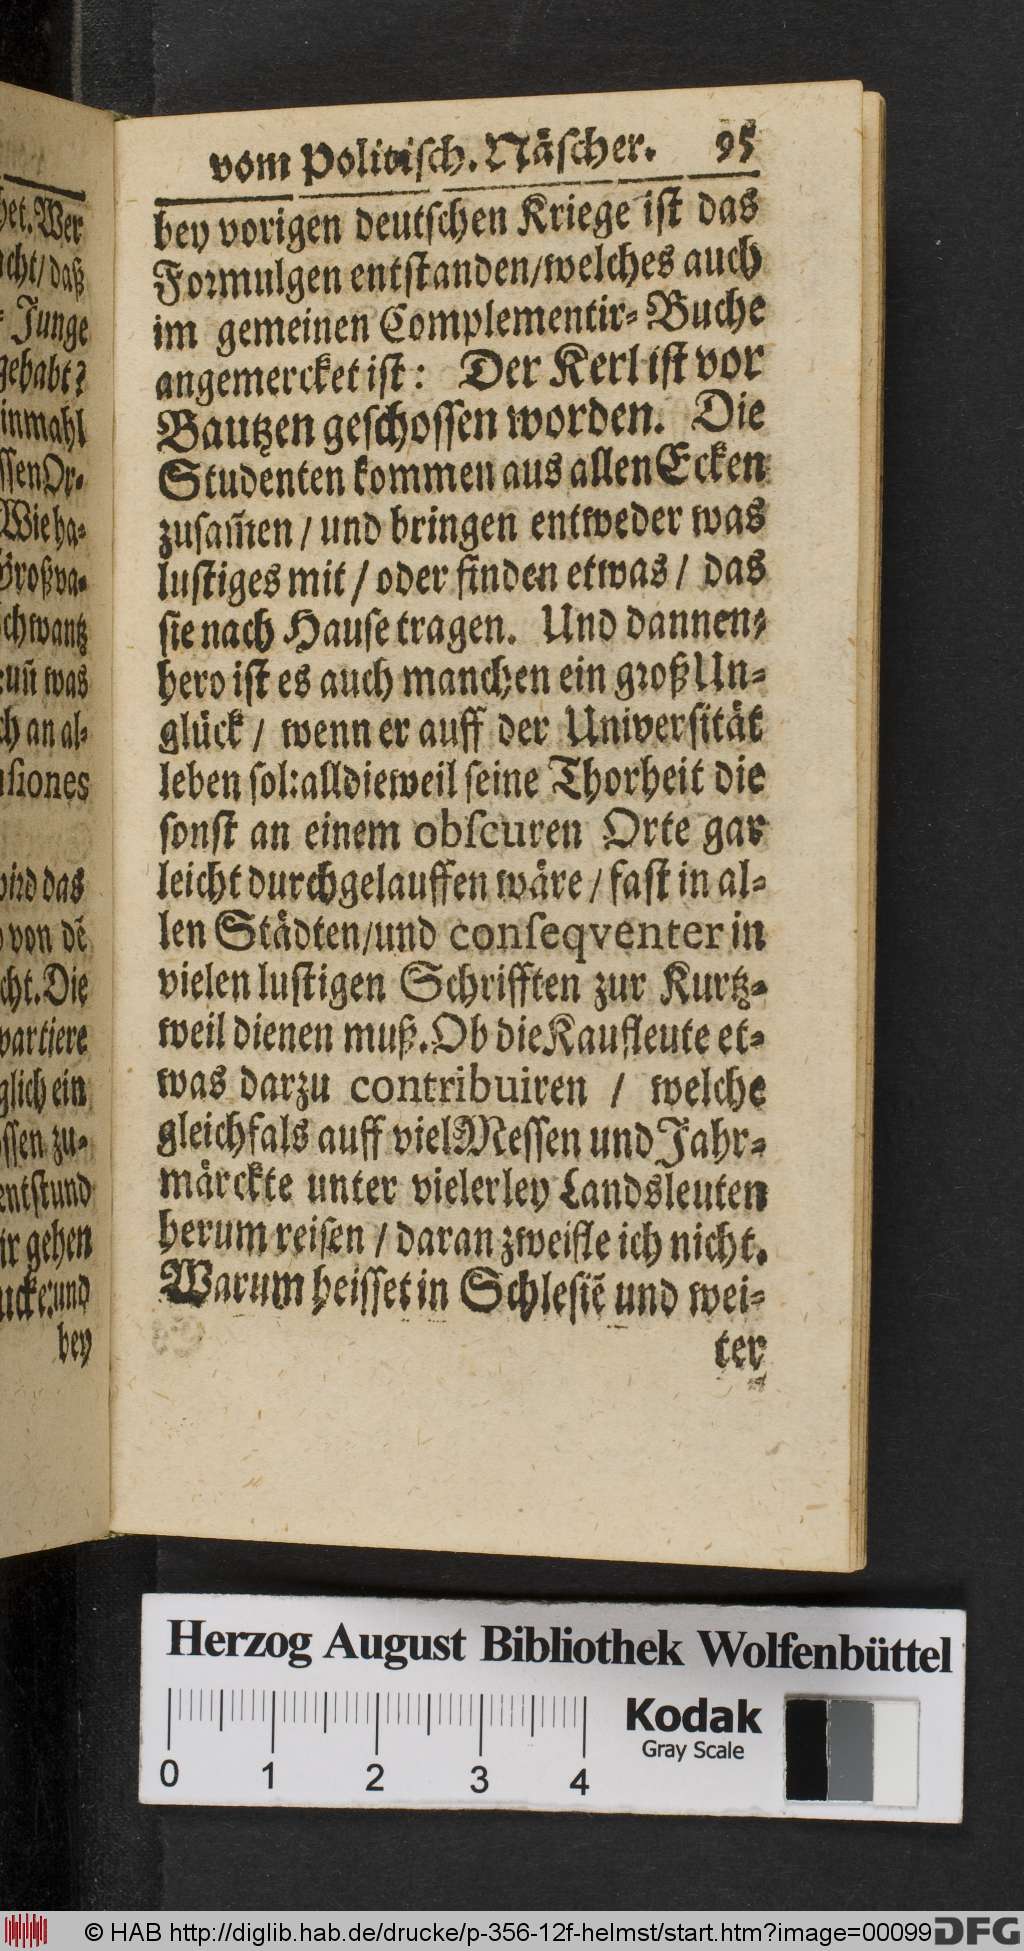 vom Politisch. Näscher. 95
bey vorigen deutschen Kriege ist das
Formulgen entstanden/welches auch
im gemeinen Complementir-Buche
angemercket ist: Der Kerl ist vor
Bautzen geschossen worden. Die
Studenten kommen aus allen Ecken
zusam̃en / und bringen entweder was
lustiges mit / oder finden etwas / das
sie nach Hause tragen. Und dannen-
hero ist es auch manchen ein groß Un-
glück / wenn er auff der Universität
leben sol: alldieweil seine Thorheit die
sonst an einem obscuren Orte gar
leicht durchgelauffen wäre / fast in al-
len Städten/und conseqventer in
vielen lustigen Schrifften zur Kurtz-
weil dienen muß. Ob die Kaufleute et-
was darzu contribuiren / welche
gleichfals auff viel Messen und Jahr-
märckte unter vielerley Landsleuten
herum reisen / daran zweifle ich nicht.
Warum heisset in Schlesiē und wei-
ter
het. Wer
cht/ daß
Junge
gehabt?
inmahl
ssen Or-
Wie ha-
Großva-
schwantz
uñ was
ch an al-
siones
wird das
von dē
cht. Die
partiere
glich ein
ssen zu-
entstund
ir gehen
ucke: und
bey
Herzog August Bibliothek Wolfenbüttel
0 1 2 3 4
Kodak
Gray Scale
© HAB http://diglib.hab.de/drucke/p-356-12f-helmst/start.htm?image=00099
DFG